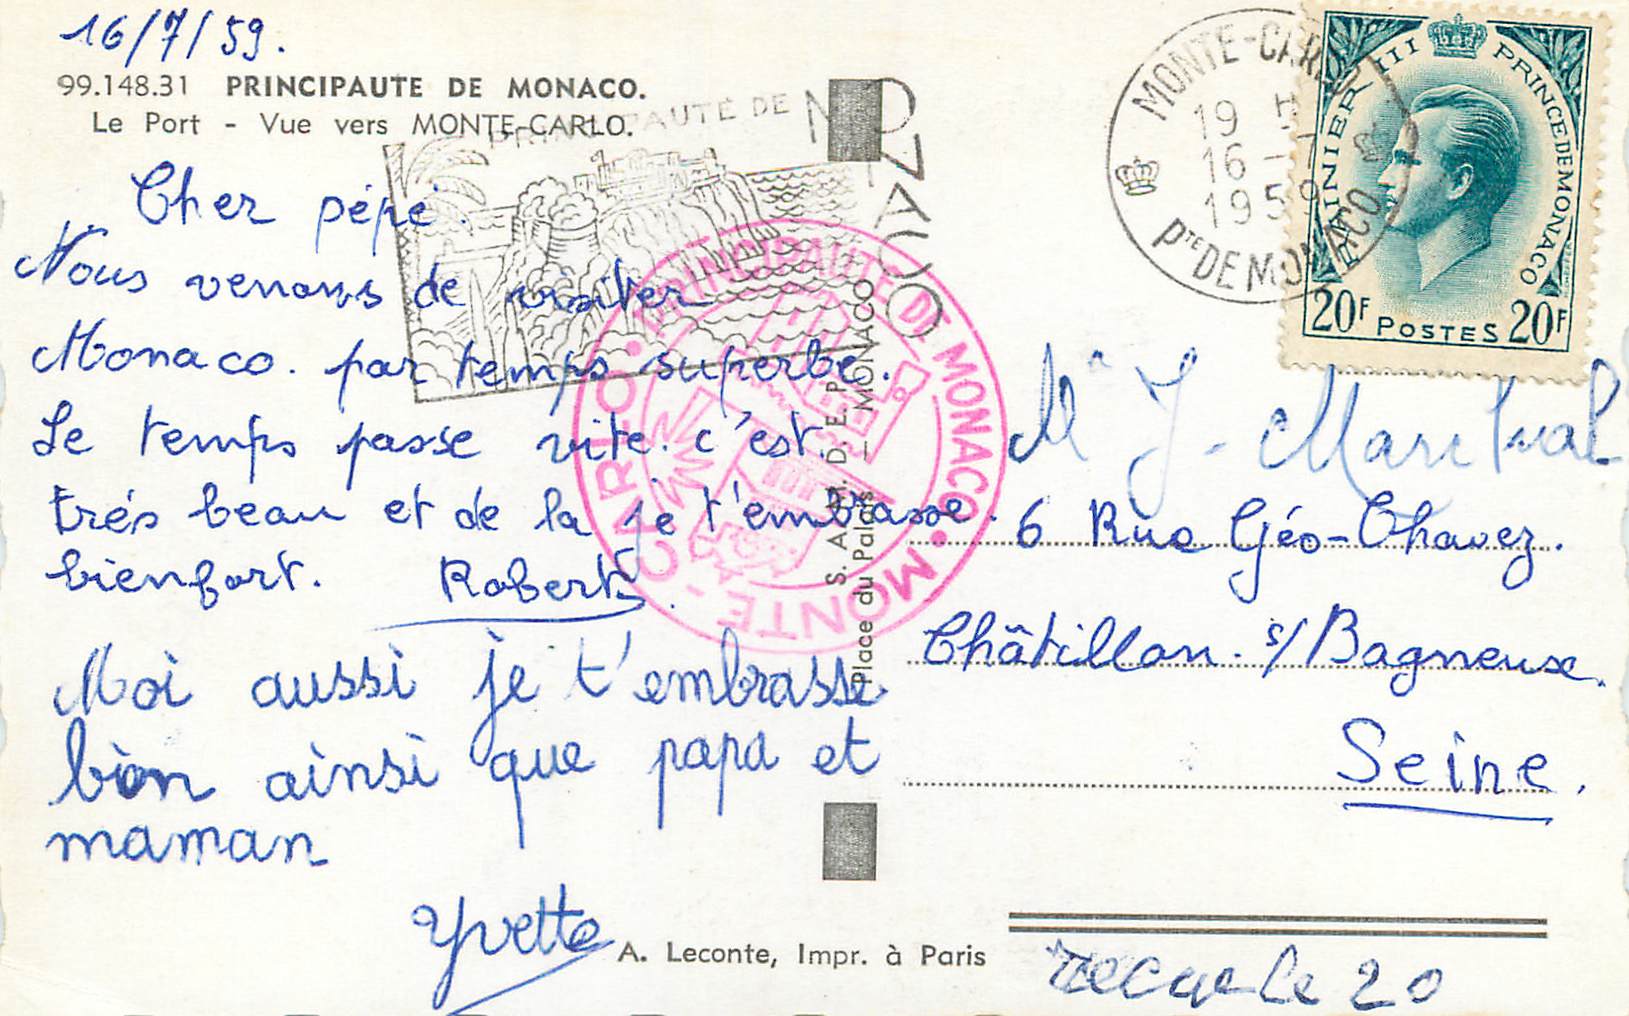 16/7/59.
99.148.31 PRINCIPAUTE DE MONACO.
Le Port - Vue vers MONTE-CARLO.
Cher pépé.
Nous venons de visiter
Monaco. par temps superbe.
Le temps passe vite. c'est.
trés beau et de la je t'embrasse.
bien fort. Robert.
Moi aussi je t'embrasse
bien ainsi que papa et
maman
Yvette
A. Leconte, Impr. à Paris
PRINCIPAUTÉ DE MONACO
PRINCIPAUTE DE MONACO • MONTE-CARLO •
S. A. M. D. E. P.
Place du Palais — MONACO
MONTE-CARLO
19 H
16 - 7
1959
Pte DE MONACO
RAINIER III PRINCE DE MONACO
20F POSTES 20F
Mr J. Martual
6 Rue Géo-Chavez.
Châtillon. s/Bagneux.
Seine.
recue le 20